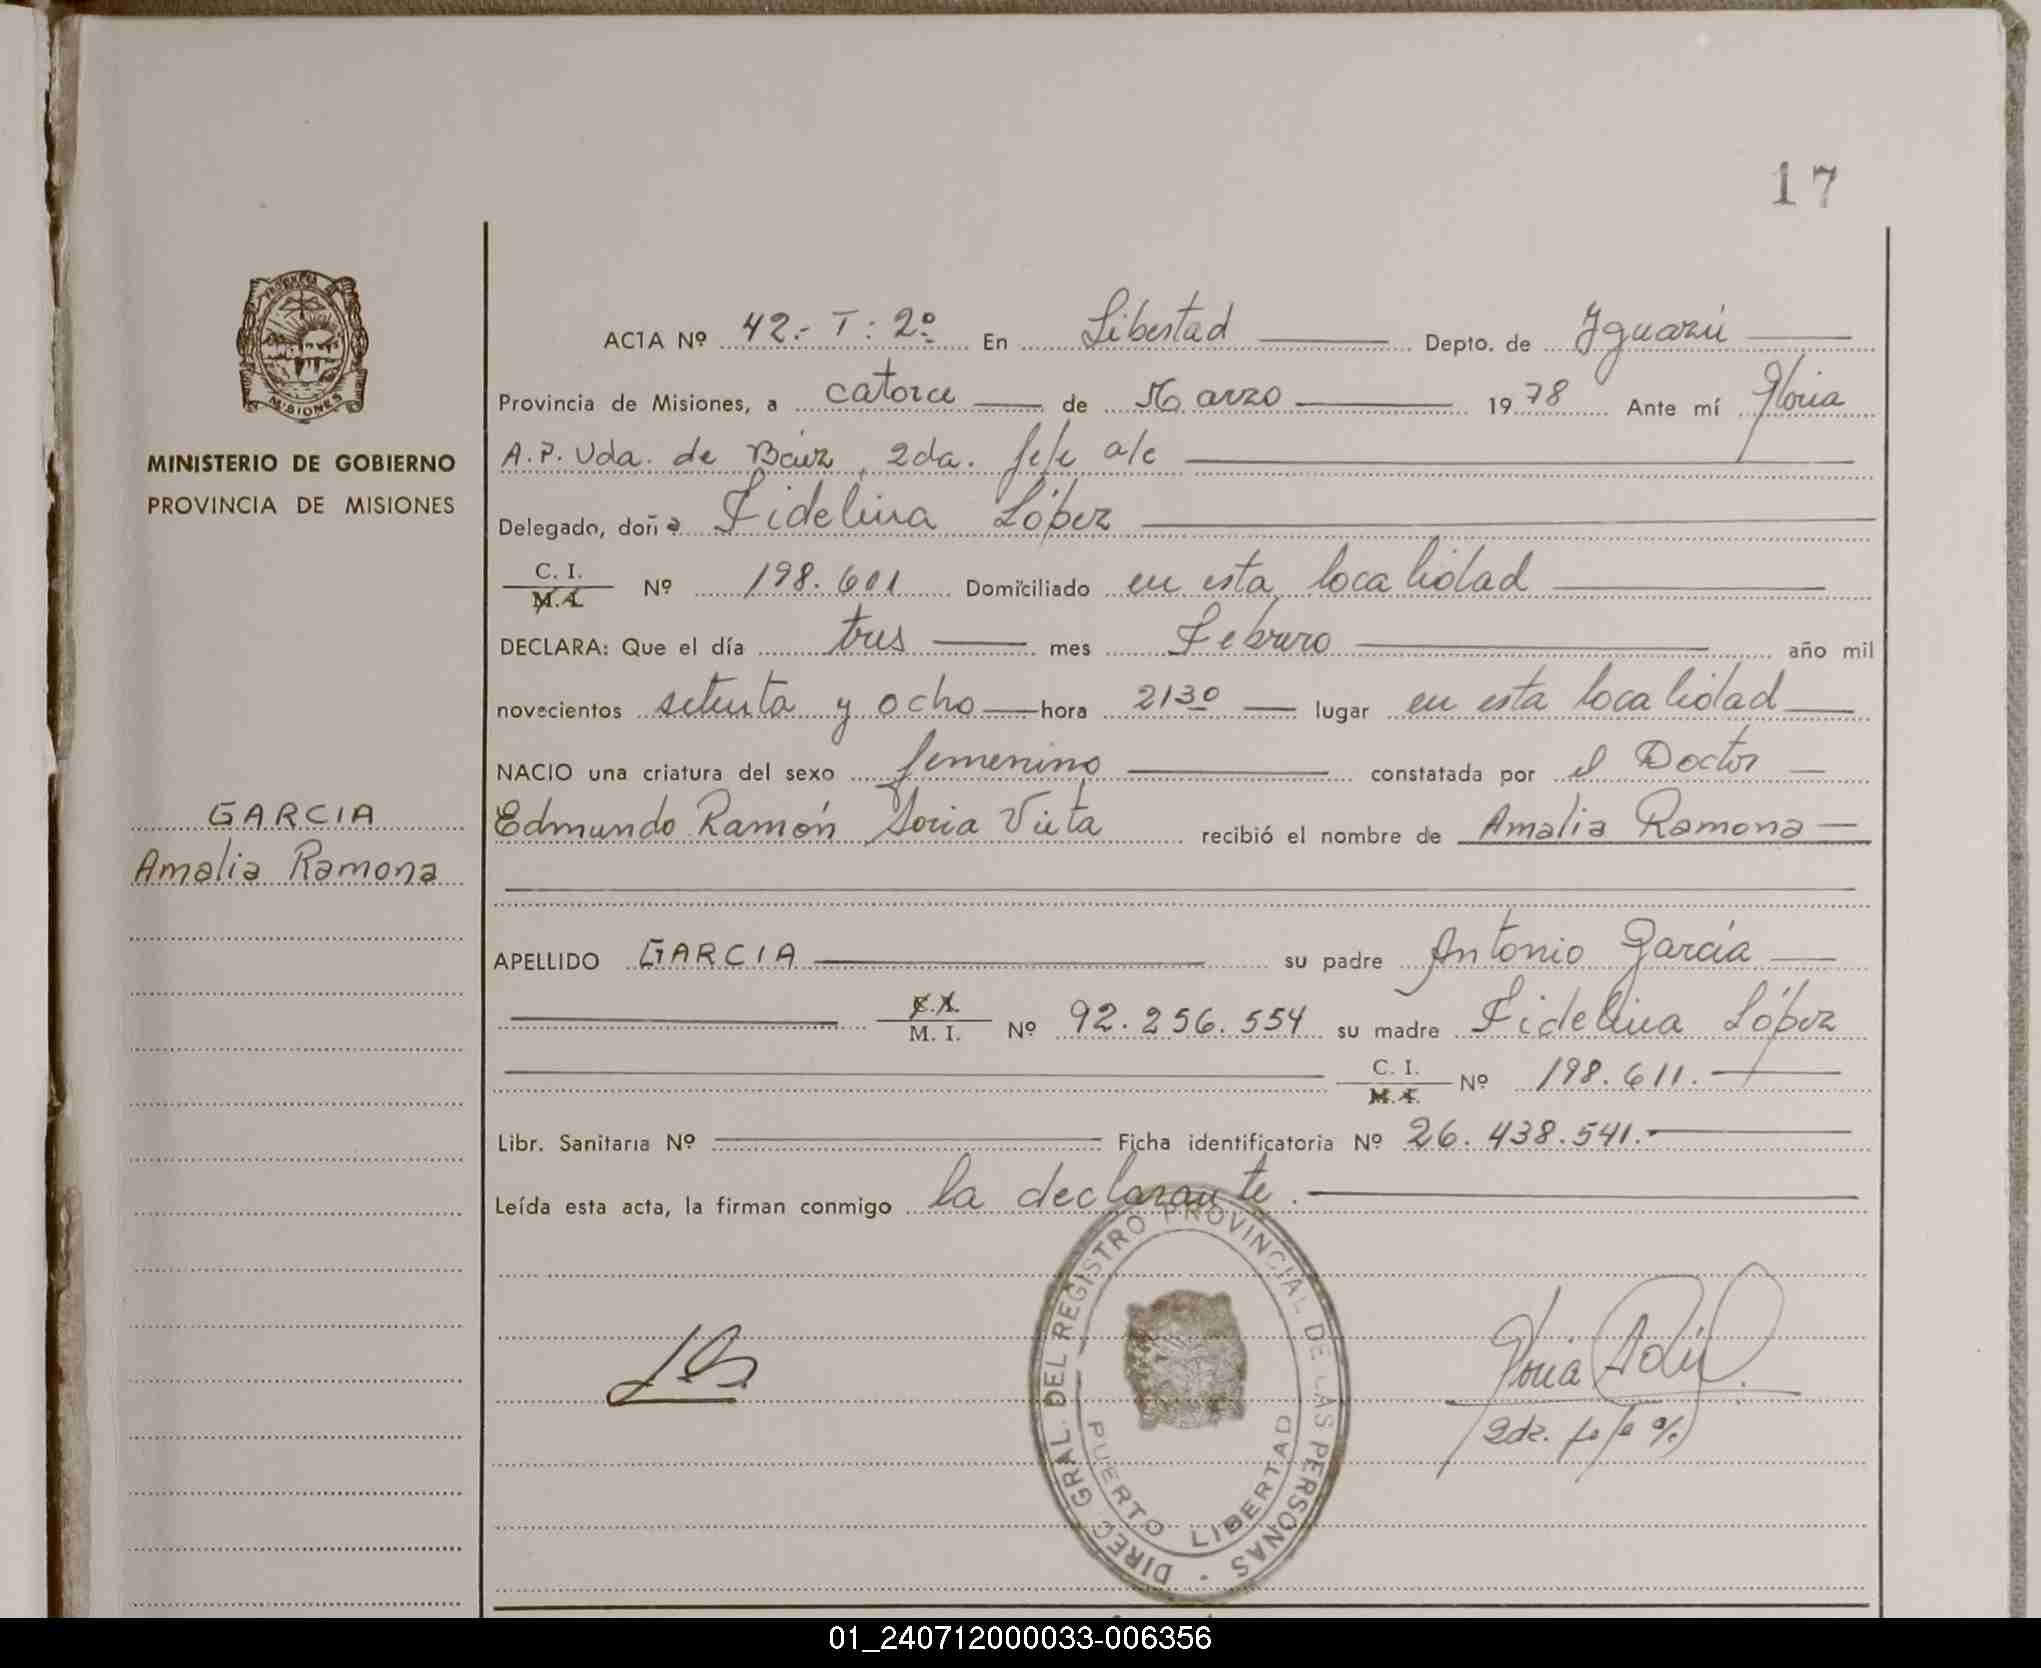 17
PROVINCIA
MISIONES
MINISTERIO DE GOBIERNO
PROVINCIA DE MISIONES
GARCIA
Amalia Ramona
ACTA Nº 42.- T: 2º En Libertad Depto. de Iguazú
Provincia de Misiones, a catorce de Marzo 1978 Ante mí Gloria
A.P. Vda. de Báez, 2da. Jefe a/c
Delegado, doña Fidelina López
C. I.
M. I. Nº 198.601 Domiciliado en esta localidad
DECLARA: Que el día tres mes Febrero año mil
novecientos setenta y ocho hora 2130 lugar en esta localidad
NACIO una criatura del sexo femenino constatada por el Doctor
Edmundo Ramón Soria Vieta recibió el nombre de Amalia Ramona
APELLIDO GARCIA su padre Antonio García
C. I.
M. I. Nº 92.256.554 su madre Fidelina López
C. I.
M. I. Nº 198.611.
Libr. Sanitaria Nº Ficha identificatoria Nº 26.438.541.-
Leída esta acta, la firman conmigo la declarante.
DIREC GRAL. DEL REGISTRO PROVINCIAL DE LAS PERSONAS
PUERTO LIBERTAD
Gloria
2da. Jefe a/c
01_240712000033-006356